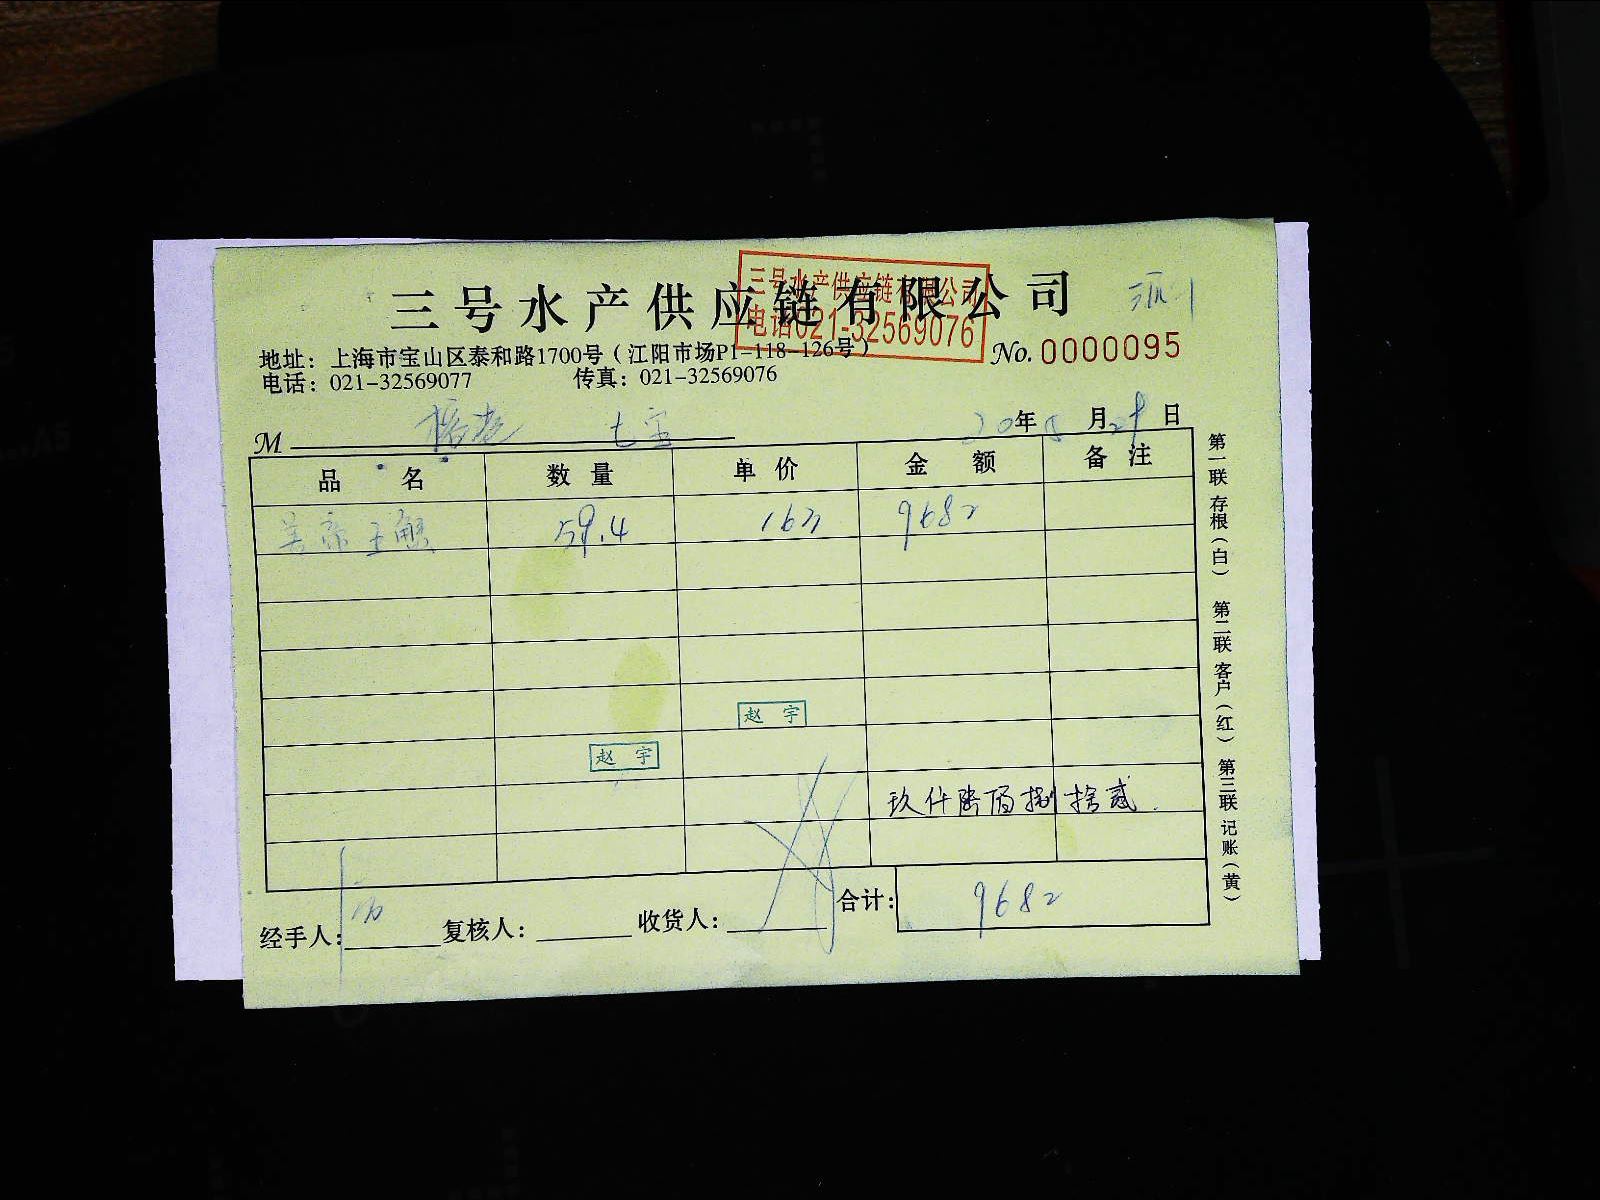 三号水产供应链有限公司
三号水产供应链有限公司
电话021-32569076
地址：上海市宝山区泰和路1700号（江阳市场P1-118-126号）
No. 0000095
电话：021-32569077 传真：021-32569076
M 七宝
20年 月29日
品名 数量 单价 金额 备注
59.4 163 9682
赵宇
赵宇
玖仟陆佰捌拾贰
合计： 9682
经手人： 复核人： 收货人：
第一联 存根（白） 第二联 客户（红） 第三联 记账（黄）